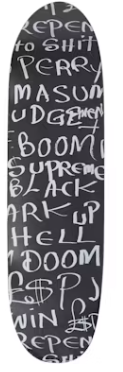 REPEN
to SHIT
PERRY
MASUM
UDGEment
BOOM
SUPREME
BLACK
ARK UP
HELL
DOOM
£$P J
WIN £$P
REPEN